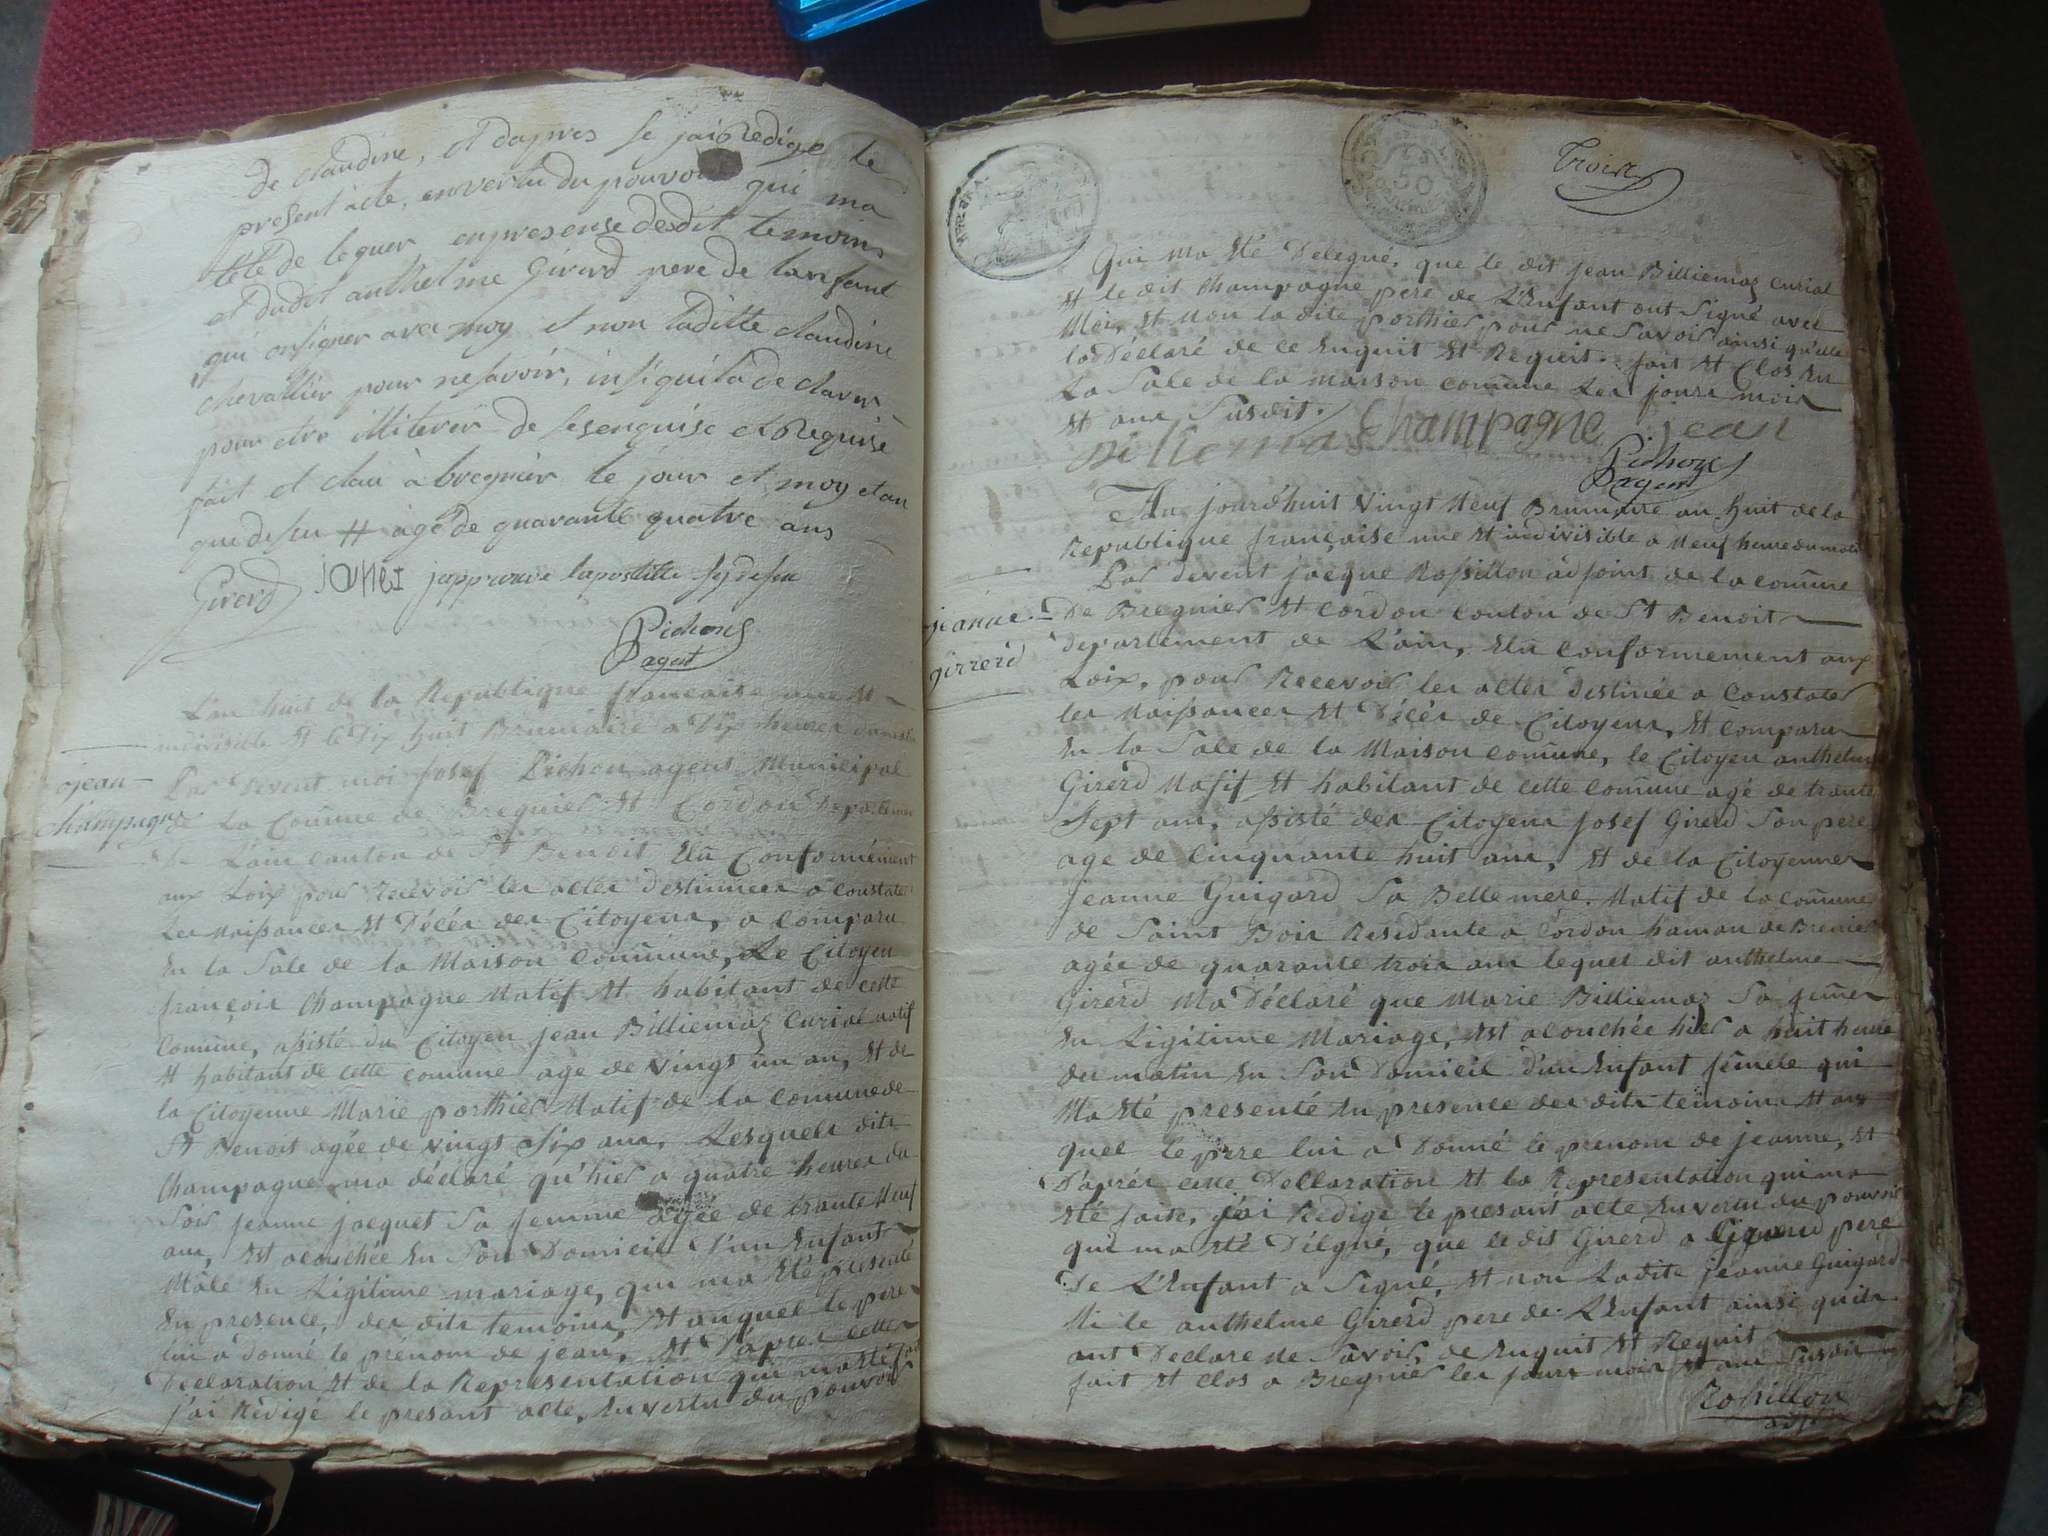 de claudine, et dapres se jai Redige le
present acte, en vertu du pouvoir qui ma
été de leguer en presense desdit temoins
et dudit anthelme Girerd pere de lanfant
qui onsigner avec moy et non laditte claudine
chevallier pour nesavoir, insi quila declarer
pour etre illiterer de sesenquise et Requise
fait et clau à bregnier le jour et moy et an
que desu # agé de quarante quatre ans
Girerd janei japprouve lapostille sy desu
Pichon
agent
L'an huit de la Republique francaise une et
indivisible et le dix huit Brumaire a dix heures du matin
jean
champagne
Par devent moi Josef Pichon agent Municipal
de La Comune de Bregnier et Cordon departement
de L'ain canton de St Benoit Elu Conformément
aux Loix pour Recevoir les actes destinnees a constater
Les naissances et Décés des Citoyens, a comparu
En la Sale de la Maison Commune, Le Citoyen
françois Champagne Natif et habitant de cette
Comune, assisté du Citoyen jean Billiemaz Curial natif
et habitant de cette comune age de vingt un an, et de
la Citoyenne Marie porthier Natif de la Comune de
St Benoit agée de vingt Six ans, Lesquels dits
Champagne ma déclaré qu'hier a quatre heures du
Soir jeanne jacquet Sa femme agée de trante Neuf
ans, Est acouchée En Son Domicil d'un Enfant
Mâle En Ligitime mariage, qui ma Eté presenté
En presence, des dits temoins, et auquel le pere
lui a donné le prénom de jean, et D'apres cette
Declaration et de la Representation qui ma eté faite
j'ai Rédigé le présant acte, En vertu du pouvoir
Trois
50
Qui Ma Eté Delegué, que le dit jean Billiemaz Curial
et le dit Champagne pere de L'Enfant ont Signé avec
Moi, et non la dite porthier pour ne Savoir ainsi qu'elle
la Déclaré de ce Enquit et Requit. fait et Clos En
La Sale de la maison comune Les jours mois
et ans Susdit.
billiemas Champagne jean
Pichon
agent
Au jourd'huit Vingt Neuf Brumaire an huit de la
Republique française une et indivisible a Neuf heure du matin
jeanne
girrerd
Par devent jacque Rossillon adjoint de la comune
De Bregnier et Cordon Conton de St Benoit
departement de L'ain, Elu conformement aux
Loix, pour Recevoir les actes destinée a Constater
les Naissances et Décés de Citoyens, et comparu
En la Sale de la Maison comune, le Citoyen anthelme
Girerd Natif et habitant de cette comune agé de trante
Sept ans, assisté des Citoyens josef Girerd Son pere
age de Cinquante huit ans, et de la Citoyennes
jeanne Guigard Sa Bellemere, Natif de la comune
de Saint Bois Residante a Cordon hamau de Brenier
agée de quarante trois ans lequel dit anthelme
Girerd Ma Déclaré que Marie Billiemaz Sa femer
En Ligitime Mariage, Est acouchée hier a huit heure
du matin En Son Domicil d'un Enfant femele qui
Ma Eté presenté En presence des dits temoins et au
quel le pere lui a Donné le prenom de jeanne, et
D'aprés cette Dellaration et la Representation qui ma
Eté faite, j'ai Redige le presant acte En vertu du pouvoir
qui ma eté D'élgué, que le dit Girerd a Girerd pere
De L'Enfant a Signé, et non Ladite jeanne Guigard
Ni le anthelme Girerd pere de L'Enfant ainsi quils
ant Declare Ne Savoir, de Enquit et Requit
fait et Clos a Bregnier les jours mois et ans Susdit
Rossillon
adjoin